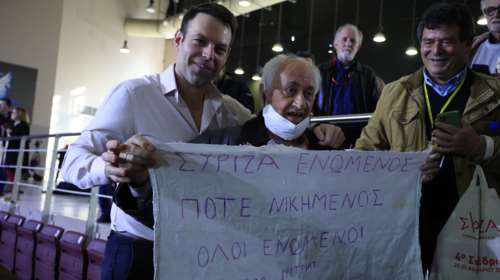 ΣΥΡΙΖΑ ΕΝΩΜΕΝΟΣ
ΠΟΤΕ ΝΙΚΗΜΕΝΟΣ
ΟΛΟΙ ΕΝΩΜΕΝΟΙ
ΣΥΡΙΖΑ
4ο Συνέδρ